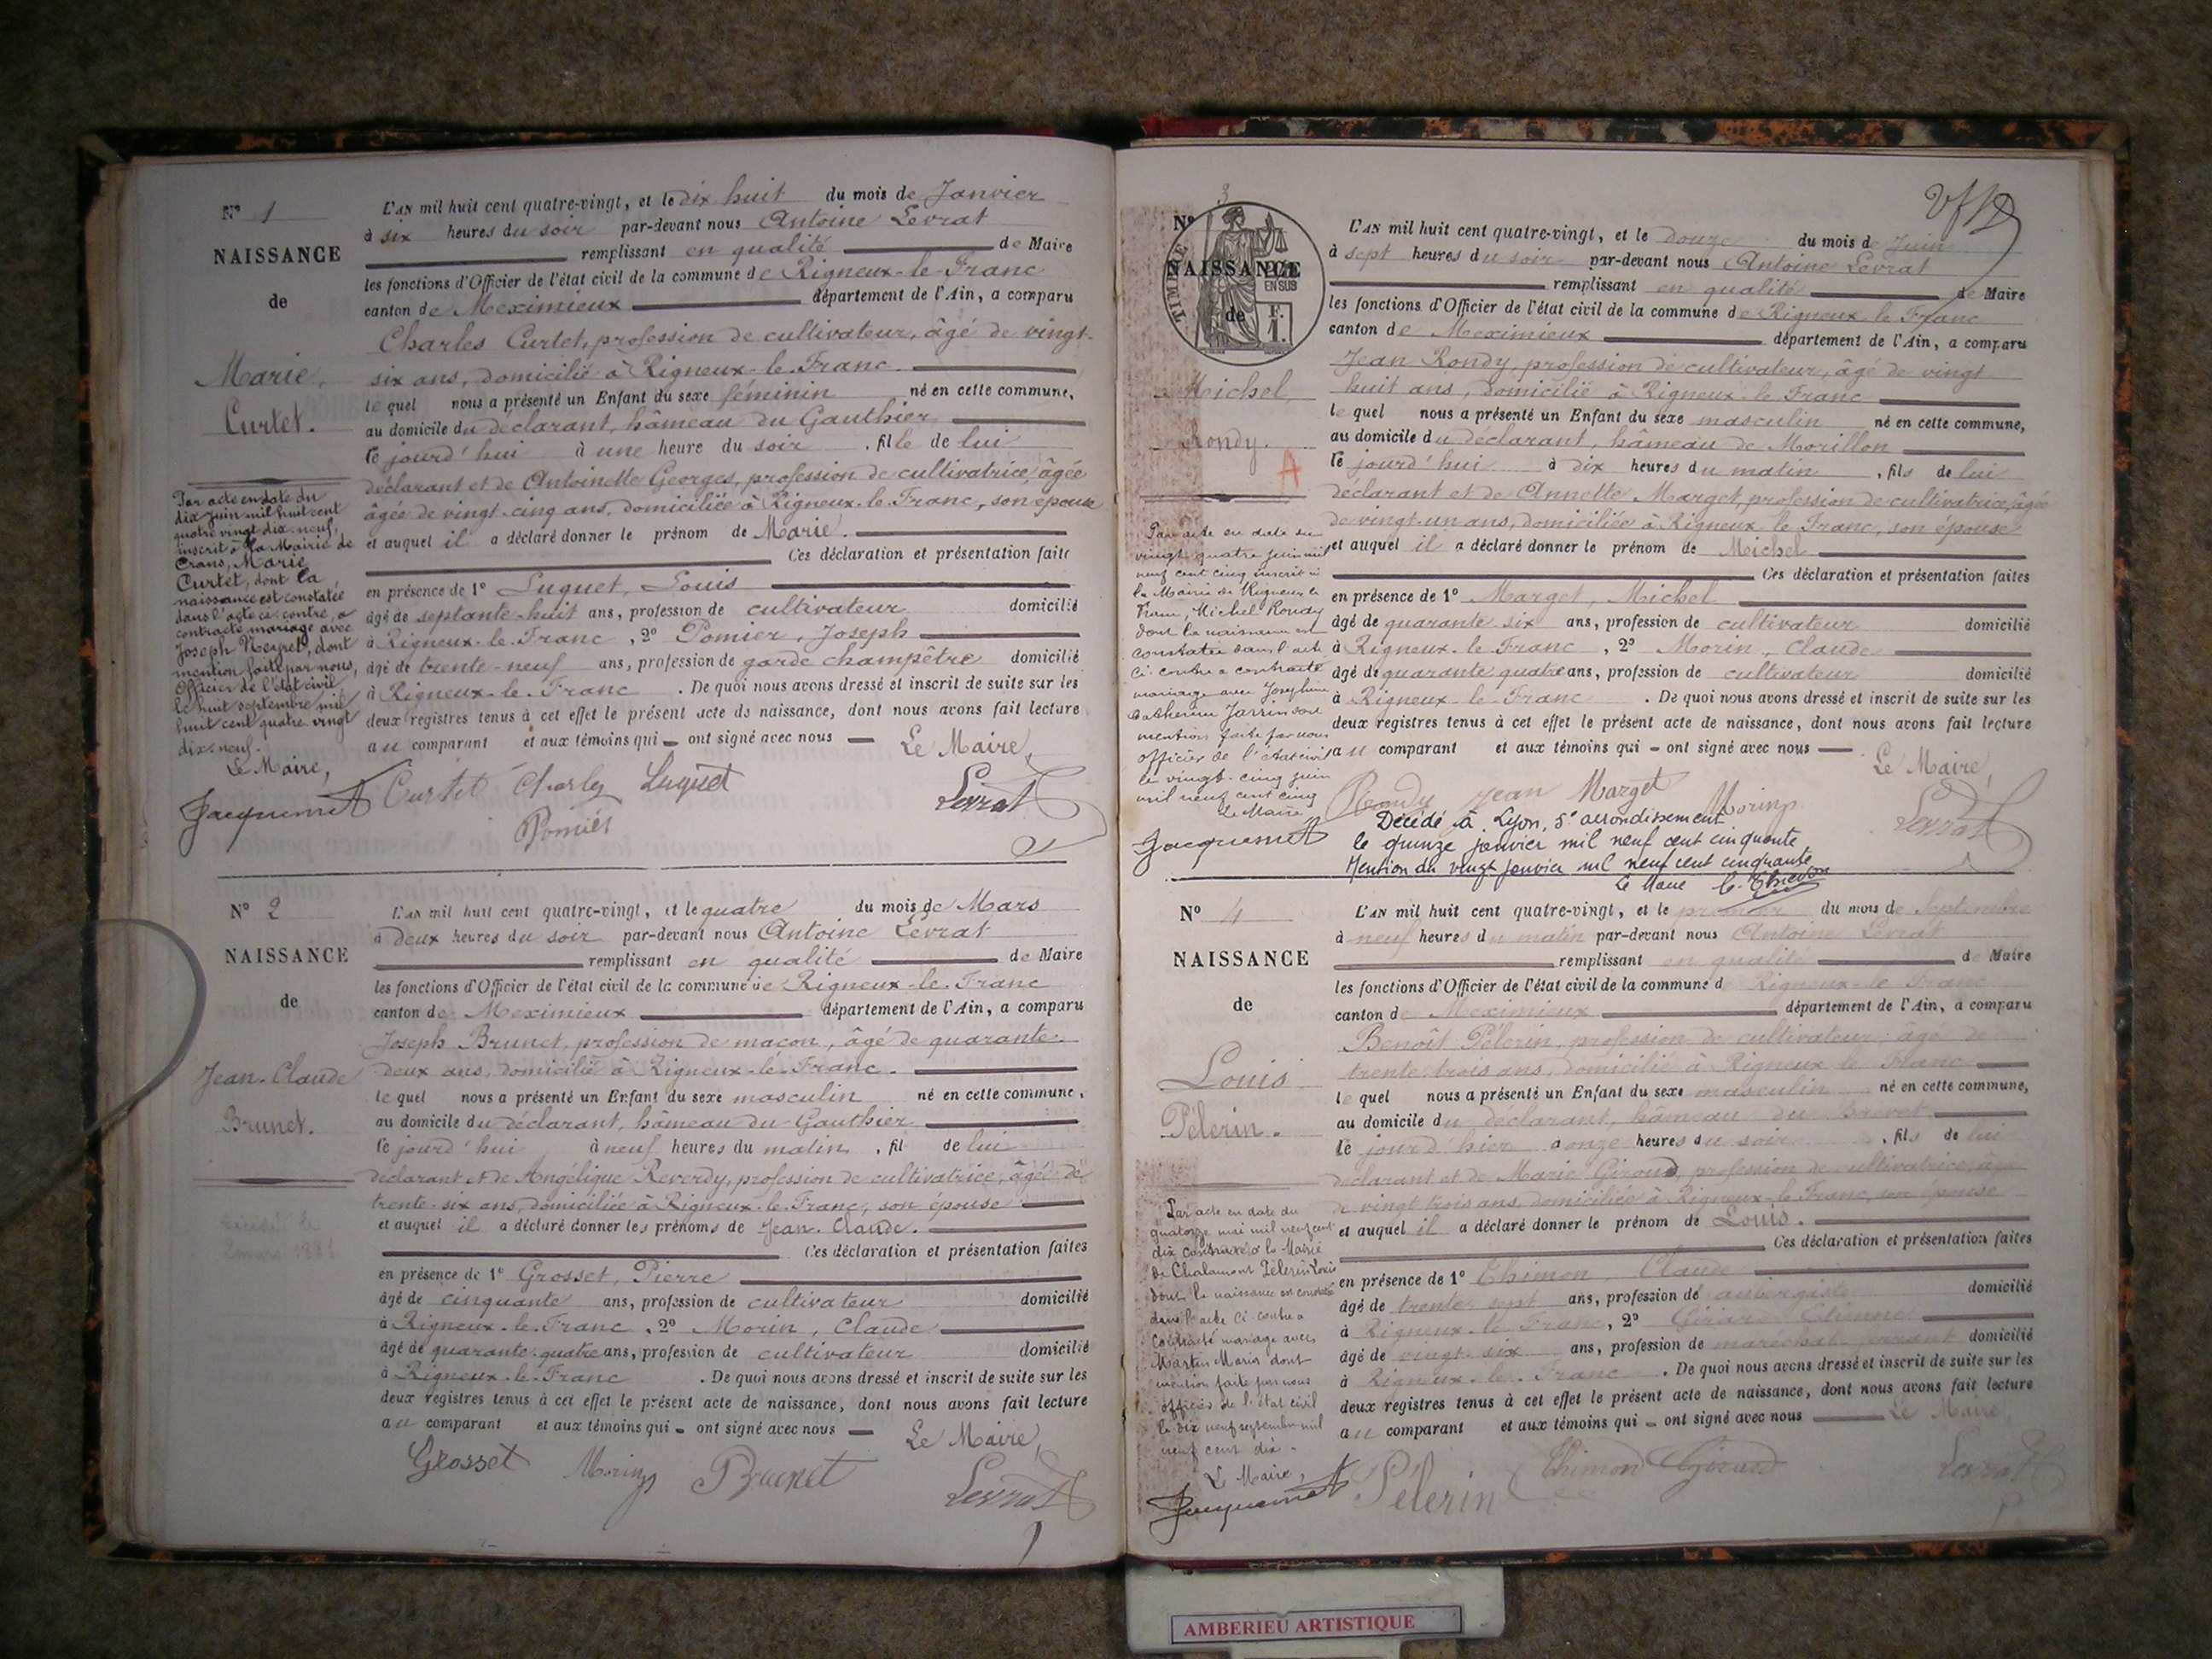 N° 1
NAISSANCE
de
Marie,
Curtet.
Par acte en date du
dix juin mil huit cent
quatre vingt dix-neuf,
inscrit à la Mairie de
Crans, Marie
Curtet, dont la
naissance est constatée
dans l'acte ci-contre, a
contracté mariage avec
Joseph Neyret, dont
mention faite par nous,
Officier de l'état civil
le huit septembre mil
huit cent quatre vingt
dix-neuf.
Le Maire,
Jacquemet
L'AN mil huit cent quatre-vingt, et le dix huit du mois de Janvier
à six heures du soir par-devant nous Antoine Levrat
remplissant en qualité de Maire
les fonctions d'Officier de l'état civil de la commune de Rigneux-le-Franc
canton de Meximieux département de l'Ain, a comparu
Charles Curtet, profession de cultivateur, âgé de vingt-
six ans, domicilié à Rigneux-le-Franc.
lequel nous a présenté un Enfant du sexe féminin né en cette commune,
au domicile du déclarant, hâmeau du Gauthier
ce jourd'hui à une heure du soir, fille de lui
déclarant et de Antoinette Georges, profession de cultivatrice, âgée
âgée de vingt-cinq ans, domiciliée à Rigneux-le-Franc, son épouse
et auquel il a déclaré donner le prénom de Marie.
Ces déclaration et présentation faite
en présence de 1° Luguet, Louis
âgé de septante-huit ans, profession de cultivateur domicilié
à Rigneux-le-Franc, 2° Pomier, Joseph
âgé de trente-neuf ans, profession de garde champêtre domicilié
à Rigneux-le-Franc. De quoi nous avons dressé et inscrit de suite sur les
deux registres tenus à cet effet le présent acte de naissance, dont nous avons fait lecture
au comparant et aux témoins qui – ont signé avec nous — Le Maire,
Curtet Charles Luguet Levrat
Pomier
N° 2
NAISSANCE
de
Jean-Claude
Brunet.
décédé le
2 mars 1881
L'AN mil huit cent quatre-vingt, et le quatre du mois de Mars
à deux heures du soir par-devant nous Antoine Levrat
remplissant en qualité de Maire
les fonctions d'Officier de l'état civil de la commune de Rigneux-le-Franc
canton de Meximieux département de l'Ain, a comparu
Joseph Brunet, profession de maçon, âgé de quarante-
deux ans, domicilié à Rigneux-le-Franc.
lequel nous a présenté un Enfant du sexe masculin né en cette commune,
au domicile du déclarant, hâmeau du Gauthier
ce jourd'hui à neuf heures du matin, fil de lui
déclarant et de Angélique Reverdy, profession de cultivatrice, âgée de
trente-six ans, domiciliée à Rigneux-le-Franc, son épouse
et auquel il a déclaré donner les prénoms de Jean-Claude.
Ces déclaration et présentation faites
en présence de 1° Grosset, Pierre
âgé de cinquante ans, profession de cultivateur domicilié
à Rigneux-le-Franc, 2° Morin, Claude
âgé de quarante-quatre ans, profession de cultivateur domicilié
à Rigneux-le-Franc. De quoi nous avons dressé et inscrit de suite sur les
deux registres tenus à cet effet le présent acte de naissance, dont nous avons fait lecture
au comparant et aux témoins qui – ont signé avec nous — Le Maire,
Grosset Morin Brunet Levrat
N° 3
TIMBRE
EN SUS
F.
1.
NAISSANCE
de
Michel,
Rondy.
A
Par acte en date du
vingt quatre juin mil
neuf cent cinq inscrit à
la Mairie de Rigneux le
Franc, Michel Rondy
dont la naissance est
constatée dans l'acte
ci-contre a contracté
mariage avec Joséphine
Catherine Jarrin dont
mention faite par nous
officier de l'état civil
le vingt-cinq juin
mil neuf cent cinq
Le Maire
Jacquemet
L'AN mil huit cent quatre-vingt, et le douze du mois de Juin
à sept heures du soir par-devant nous Antoine Levrat
remplissant en qualité de Maire
les fonctions d'Officier de l'état civil de la commune de Rigneux-le-Franc
canton de Meximieux département de l'Ain, a comparu
Jean Rondy, profession de cultivateur, âgé de vingt
huit ans, domicilié à Rigneux-le-Franc
lequel nous a présenté un Enfant du sexe masculin né en cette commune,
au domicile du déclarant, hâmeau de Morillon
ce jourd'hui à dix heures du matin, fils de lui
déclarant et de Annette Marget, profession de cultivatrice, âgée
de vingt-un ans, domiciliée à Rigneux-le-Franc, son épouse
et auquel il a déclaré donner le prénom de Michel
Ces déclaration et présentation faites
en présence de 1° Marget, Michel
âgé de quarante six ans, profession de cultivateur domicilié
à Rigneux-le-Franc, 2° Morin, Claude
âgé de quarante quatre ans, profession de cultivateur domicilié
à Rigneux-le-Franc. De quoi nous avons dressé et inscrit de suite sur les
deux registres tenus à cet effet le présent acte de naissance, dont nous avons fait lecture
au comparant et aux témoins qui – ont signé avec nous —. Le Maire,
Rondy Jean Marget Morin Levrat
Décédé à Lyon, 5e arrondissement
le quinze janvier mil neuf cent cinquante
Mention du vingt janvier mil neuf cent cinquante
Le Maire
N° 4
NAISSANCE
de
Louis
Pélerin.
Par acte en date du
quatorze mai mil neuf cent
dix contracté à la Mairie
de Chalamont Pélerin Louis
dont la naissance est constatée
dans l'acte ci-contre a
contracté mariage avec
Martin Maria dont
mention faite par nous
officier de l'état civil
le dix neuf septembre mil
neuf cent dix.
Le Maire,
Jacquemet
L'AN mil huit cent quatre-vingt, et le premier du mois de Septembre
à neuf heures du matin par-devant nous Antoine Levrat
remplissant en qualité d Maire
les fonctions d'Officier de l'état civil de la commune d Rigneux-le-Franc
canton de Meximieux département de l'Ain, a comparu
Benoît Pélerin, profession de cultivateur, âgé de
trente-trois ans, domicilié à Rigneux le Franc
lequel nous a présenté un Enfant du sexe masculin né en cette commune,
au domicile du déclarant, hâmeau du
le jour d'hier à onze heures du soir, fils de lui
déclarant et de Marie Giroud, profession de cultivatrice, âgée
de vingt trois ans, domiciliée à Rigneux-le-Franc, son épouse
et auquel il a déclaré donner le prénom de Louis.
Ces déclaration et présentation faites
en présence de 1° Thimon, Claude
âgé de trente sept ans, profession de aubergiste domicilié
à Rigneux-le-Franc, 2° Girard Etienne
âgé de vingt-six ans, profession de maréchal ferrant domicilié
à Rigneux-le-Franc. De quoi nous avons dressé et inscrit de suite sur les
deux registres tenus à cet effet le présent acte de naissance, dont nous avons fait lecture
au comparant et aux témoins qui – ont signé avec nous — Le Maire
Pélerin Thimon Girard Levrat
AMBERIEU ARTISTIQUE